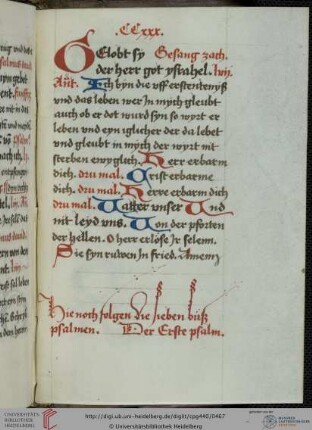 CCxxx.
Gelobt sy Gesang zach.
der herr got ysrahel. lvij.
Ant. Ich byn die vfferstentenyß
vnd das leben wer In mych gleubt
auch ob er dot wurd syn so wyrt er
leben vnd eyn iglicher der da lebet
vnd gleubt in mych der wyrt nit
sterben ewyglich. Herr erbarm
dich. dru mal. Crist erbarme
dich. dru mal. Herre erbarm dich
dru mal. Vatter vnser Vnd
nit leyd vns. Von der pforten
der hellen. O herr erlose Ir selenn.
Sie syn ruwen in fried. Amenn
Hie noch folgen die sieben buß
psalmen. Der Erste psalm.
http://digi.ub.uni-heidelberg.de/diglit/cpg440/0467
© Universitätsbibliothek Heidelberg
UNIVERSITÄTS-
BIBLIOTHEK
HEIDELBERG